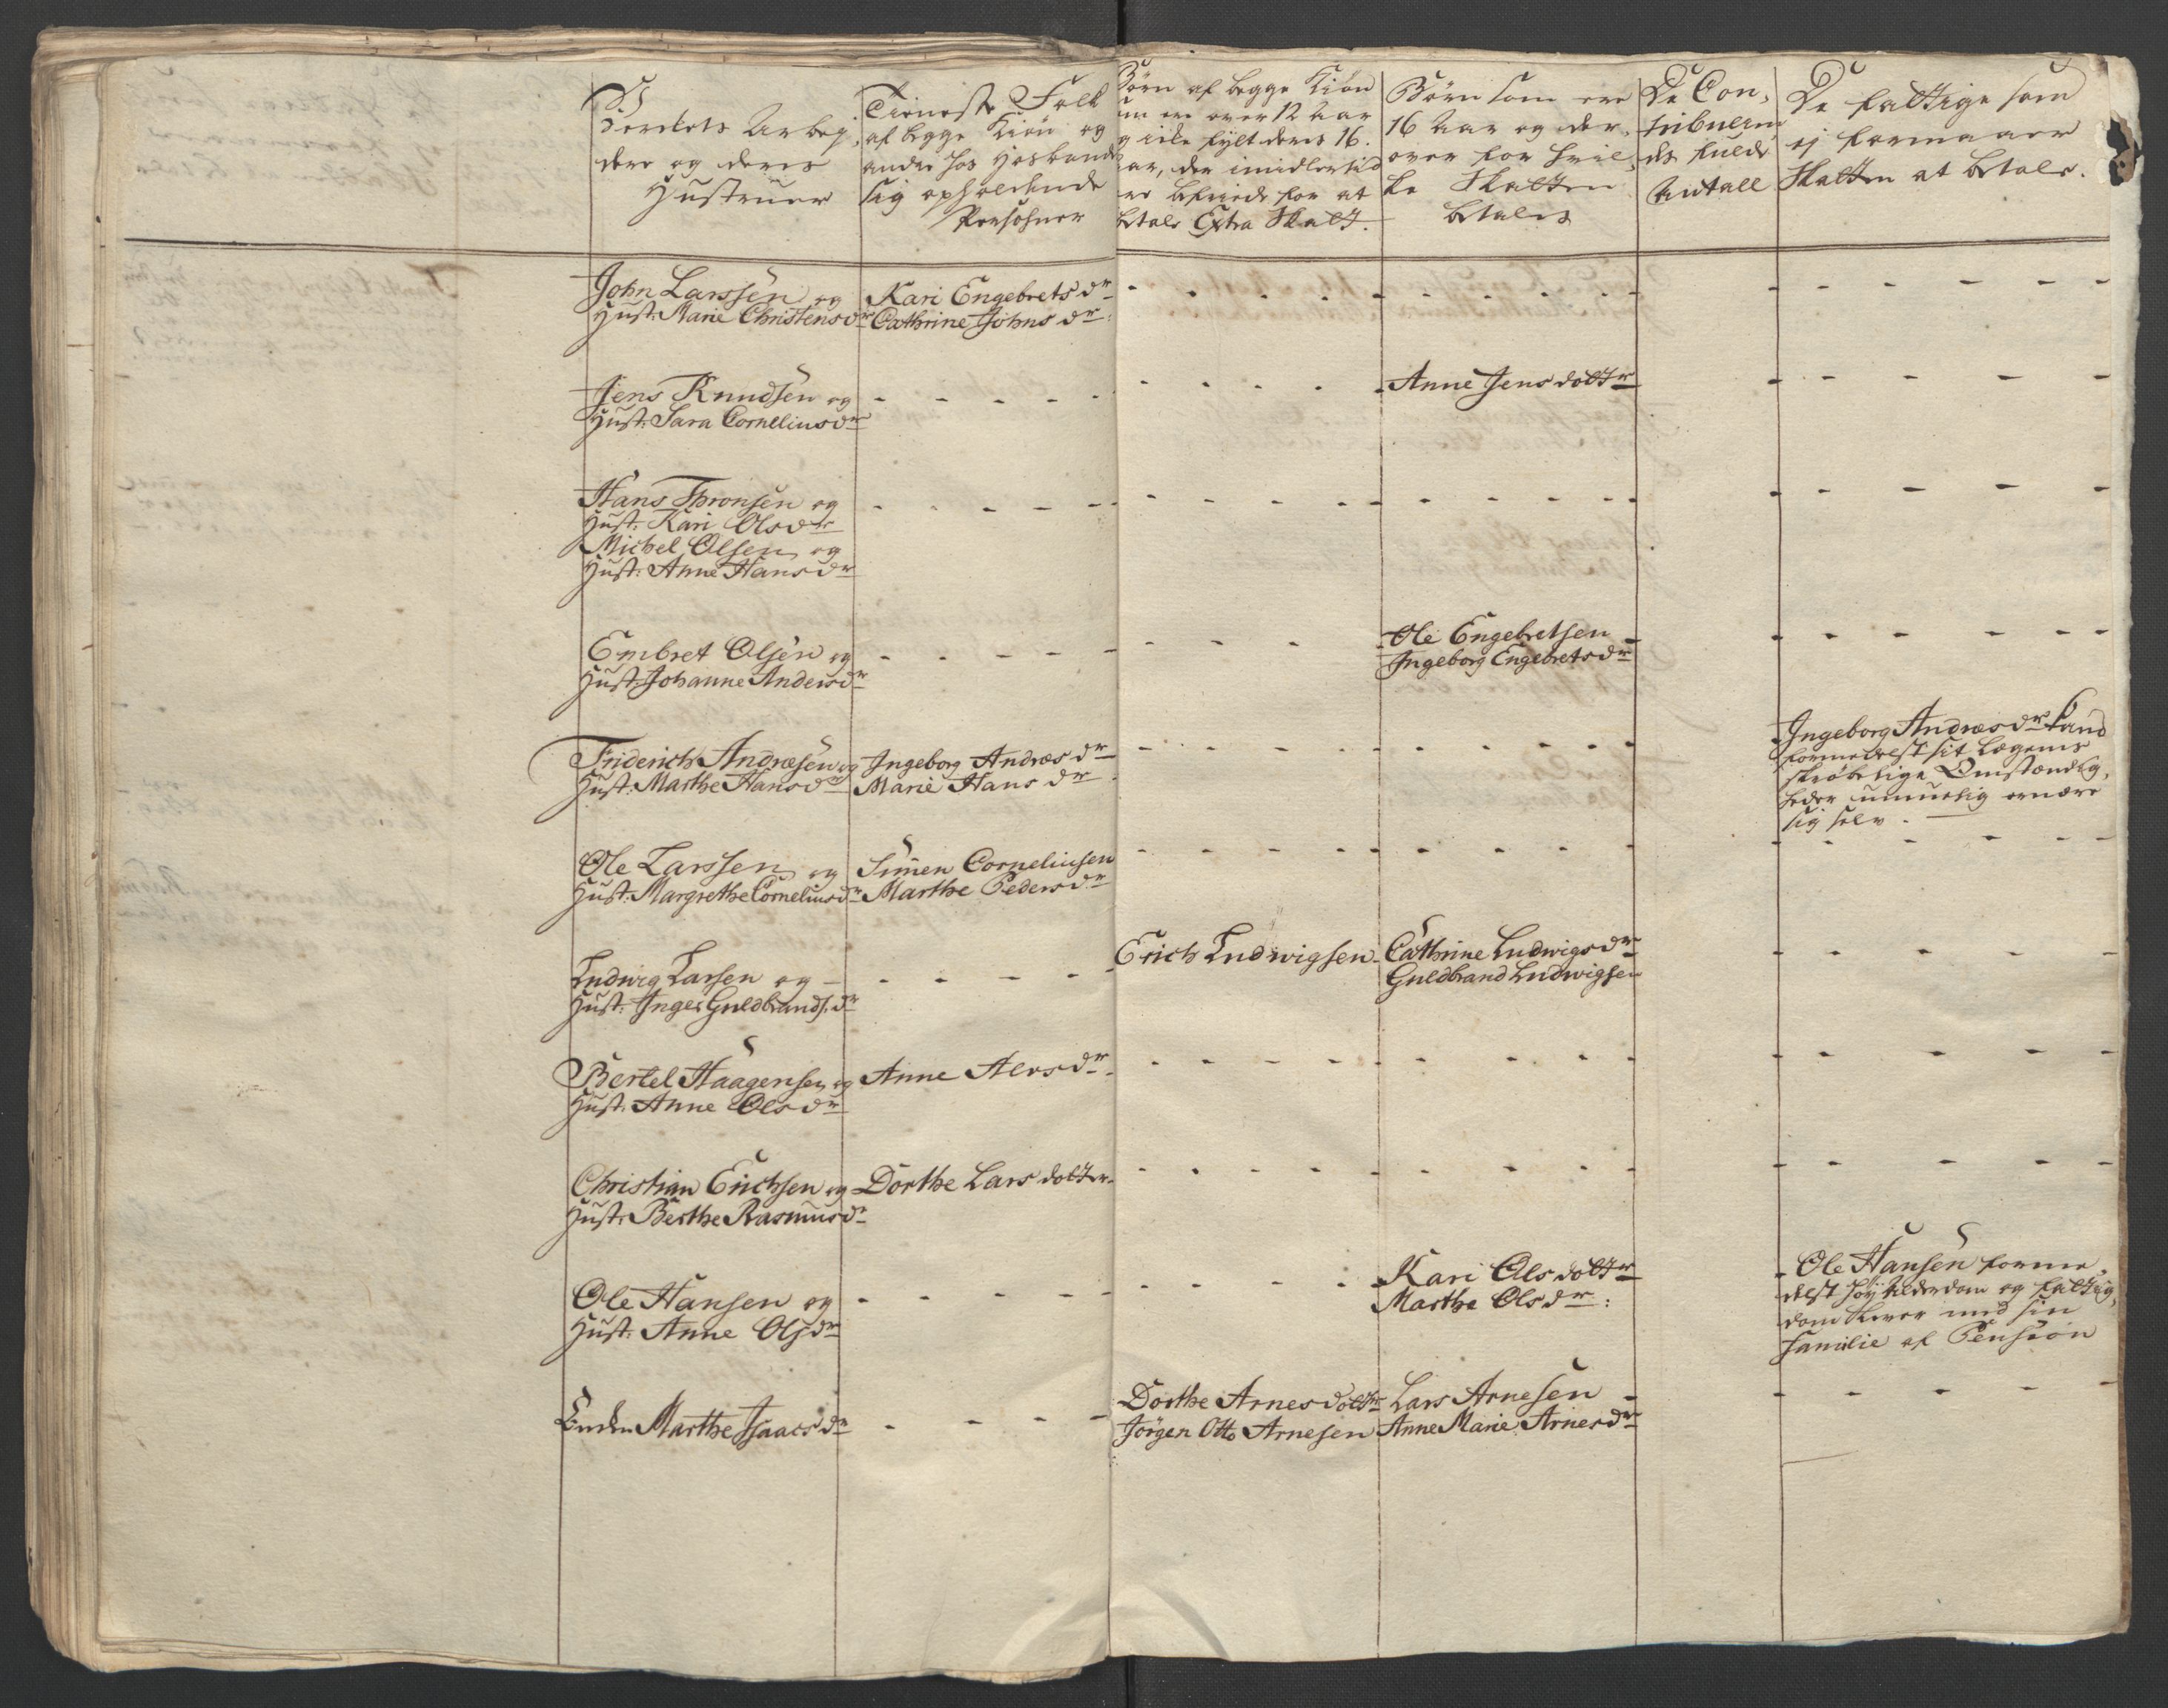 Værckets Arbey,
dere og deres
Hustruer
Tieneste Folk
af begge Kiön og
andre hos Hosbonde
sig opholdende
Persohner
Börn af begge Kiön
som ere over 12 Aar
og icke fylt deres 16.
Aar, der imidlertid
ere befriede for at
betale Extra Skatt.
Börn som ere
16 Aar og der,
over for hvil,
ke Skatten
betales
De Con,
tribueren
des fulde
Antall
De fattige som
ej formaaer
Skatten at betale.
John Larssen og
Hust: Marie Christensdr
Kari Engebretsdr
Cathrine Johnsdr:
Jens Knudsen og
Hust: Sara Corneliusdr
Anne Jensdottr
Hans Thronsen og
Hust: Kari Olsdr
Michel Olsen og
Hust: Anne Hansdr
Embret Olsen og
Hust: Johanne Andersdr
Ole Engebretsen
Ingeborg Engebretsdr
Friderich Andresen og
Hust: Marthe Hansdr
Ingeborg Andræsdr
Marie Hansdr
Ingeborg Andræsdr kand
formedelst sit Legems
skröbelige Omstændig,
heder umuelig ernære
sig selv.
Ole Larssen og
Hust: Margrethe Corneliusdr
Simen Corneliusen
Marthe Pedersdr
Ludwig Larsen og
Hust: Inger Guldbrands.dr
Erich Ludwigsen
Cathrine Ludwigsdr
Guldbrand Ludwigsen
Bertel Haagensen og
Hust: Anne Olsdr
Anne Alvsdr.
Christian Erichsen og
Hust: Berthe Rasmusdr
Dorthe Larsdotter
Ole Hansen og
Hust: Anne Olsdr
Kari Olsdottr
Marthe Olsdr:
Ole Hansen forme,
delst höy Alderdom og fattig,
dom lever med sin
Familie af Pension
Encken Marthe Isaacsdr
Dorthe Arnesdottr
Jörgen Otto Arnesen
Lars Arnesen
Anne Marie Arnesdr